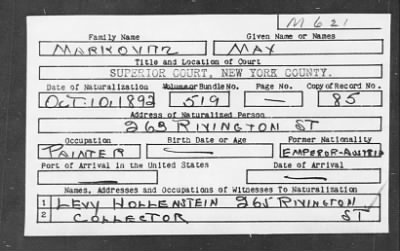 M621
Family Name Given Name or Names
MARKOVITZ MAX
Title and Location of Court
SUPERIOR COURT, NEW YORK COUNTY.
Date of Naturalization Volume or Bundle No. Page No. Copy of Record No.
OCT. 10, 1892 519 — 85
Address of Naturalized Person
265 RIVINGTON ST
Occupation Birth Date or Age Former Nationality
PAINTER — EMPEROR-AUSTRIA
Port of Arrival in the United States Date of Arrival
— —
Names, Addresses and Occupations of Witnesses To Naturalization
1 LEVY HOLLENSTEIN 265 RIVINGTON
2 COLLECTOR ST